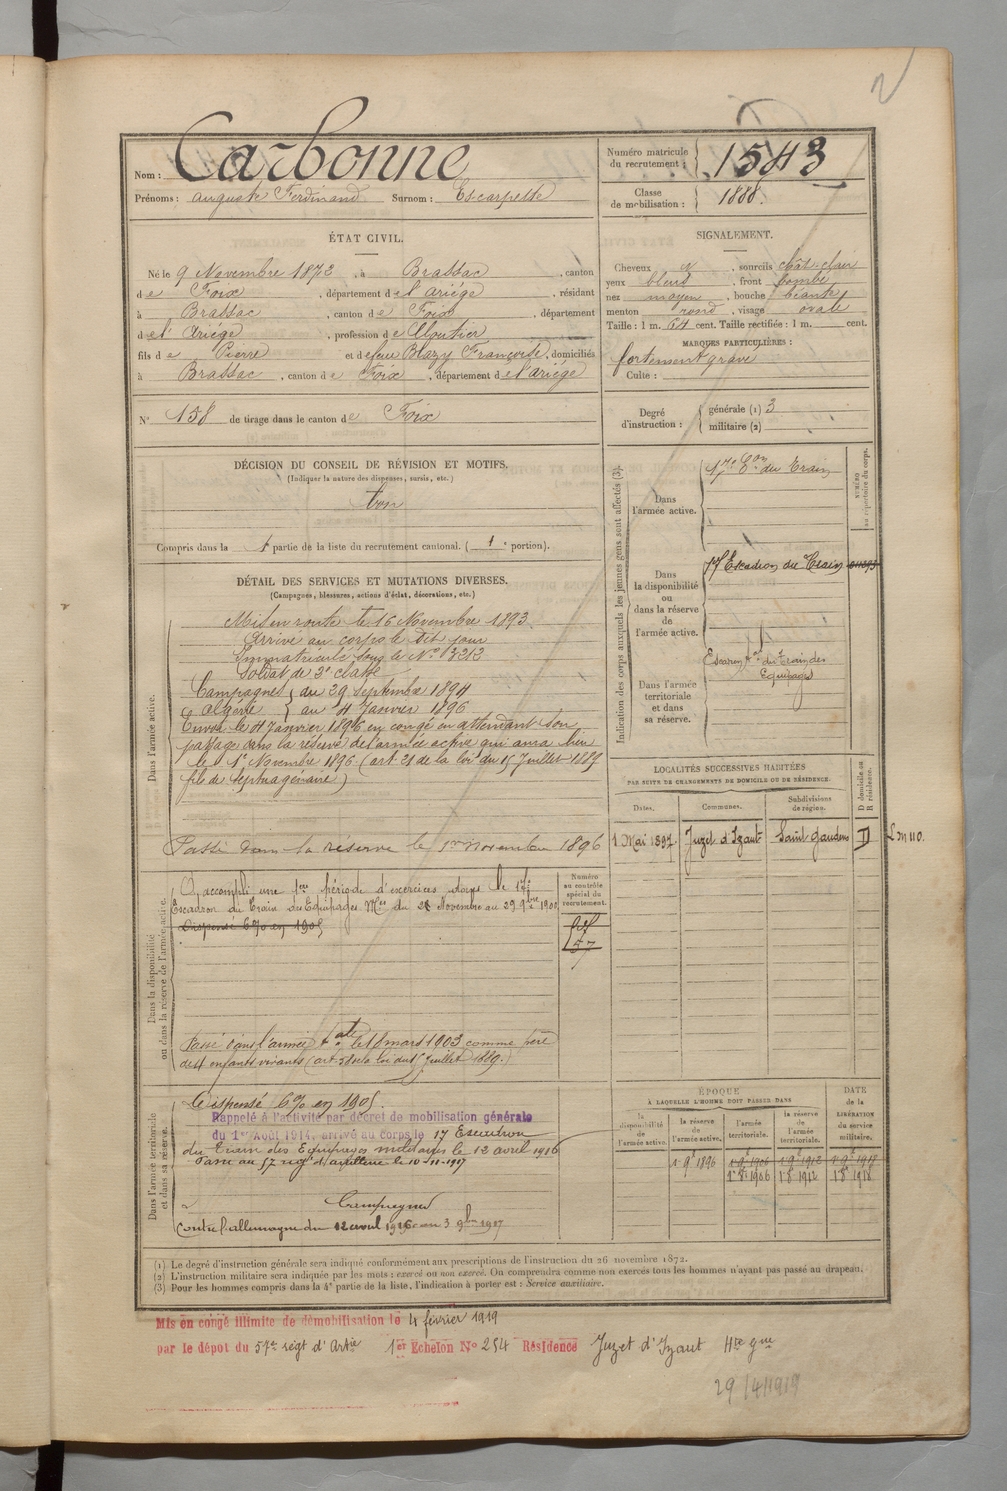 Nom : Carbonne
Prénoms : auguste Ferdinand Surnom : Escarpette
Numéro matricule du recrutement : 1543
Classe de mobilisation : 1888.
ÉTAT CIVIL.
Né le 9 Novembre 1872, à Brassac, canton
de Foix, département de l'ariége, résidant
à Brassac, canton de Foix, département
de l'Ariége, profession de Cloutier
fils de Pierre et de feue Blazy Françoise, domiciliés
à Brassac, canton de Foix, département de l'ariége
N° 158 de tirage dans le canton de Foix
SIGNALEMENT.
Cheveux d, sourcils chât-clair
yeux bleus, front bombé
nez moyen, bouche béante
menton rond, visage ovale
Taille : 1 m. 64 cent. Taille rectifiée : 1 m. cent.
MARQUES PARTICULIÈRES :
fortement gravé
Culte :
Degré d'instruction : générale (1) 3
militaire (2)
DÉCISION DU CONSEIL DE RÉVISION ET MOTIFS.
(Indiquer la nature des dispenses, sursis, etc.)
bon
Compris dans la 1 partie de la liste du recrutement cantonal. (1e portion).
DÉTAIL DES SERVICES ET MUTATIONS DIVERSES.
(Campagnes, blessures, actions d'éclat, décorations, etc.)
Dans l'armée active.
Mis en route le 16 Novembre 1893.
Arrivé au corps le dit jour
Immatriculé sous le N° 3212
Soldat de 2e classe
Campagnes } du 29 Septembre 1894
Algérie } au 4 Janvier 1896
Envoyé le 4 Janvier 1896 en congé en attendant son
passage dans la réserve de l'armée active qui aura lieu
le 1er Novembre 1896. (art. 21 de la loi du 15 Juillet 1889
fils de septuagénaire)
Passé dans la réserve le 1er novembre 1896
Indication des corps auxquels les jeunes gens sont affectés (3).
NUMÉRO au répertoire du corps.
Dans l'armée active.
17e Eon du Train
Dans la disponibilité ou dans la réserve de l'armée active.
17e Escadron du Train
Dans l'armée territoriale et dans sa réserve.
Escadron tal du Train des
Equipages
LOCALITÉS SUCCESSIVES HABITÉES
PAR SUITE DE CHANGEMENTS DE DOMICILE OU DE RÉSIDENCE.
Dates. Communes. Subdivisions de région. D domicile ou R résidence.
1 Mai 1897. Juzet d'Izaut Saint Gaudens D L m 110.
Dans la disponibilité ou dans la réserve de l'armée active.
Numéro au contrôle spécial du recrutement.
A accompli une 1ère période d'exercices dans le 17e
Escadron du Train des Equipages Mres du 2 Novembre au 29 9bre 1900
Dispensé 6% en 1905
57
Passé dans l'armée tale le 18 mars 1903 comme père
de 4 enfants vivants (art. 58 de la loi du 15 Juillet 1889.)
Dans l'armée territoriale et dans sa réserve.
dispensé 6% en 1905.
Rappelé à l'activité par décret de mobilisation générale
du 1er Août 1914, arrivé au corps le 17 Escadron
du Train des Equipages militaires le 12 avril 1916
Passé au 57 reg d'artillerie le 10-11-1917
Campagnes
Contre l'allemagne du 12 avril 1916 au 3 9bre 1917
ÉPOQUE
À LAQUELLE L'HOMME DOIT PASSER DANS
DATE de la LIBÉRATION du service militaire.
la disponibilité de l'armée active. la réserve de l'armée active. l'armée territoriale. la réserve de l'armée territoriale.
1 9e 1896 1 9e 1906 1 9e 1912 1 9e 1918
1 8e 1906 1 8e 1912 1 8e 1918
(1) Le degré d'instruction générale sera indiqué conformément aux prescriptions de l'instruction du 26 novembre 1872.
(2) L'instruction militaire sera indiquée par les mots : exercé ou non exercé. On comprendra comme non exercés tous les hommes n'ayant pas passé au drapeau.
(3) Pour les hommes compris dans la 4e partie de la liste, l'indication à porter est : Service auxiliaire.
Mis en congé illimité de démobilisation le 4 février 1919
par le dépot du 57e régt d'Artie 1er Echelon N° 254 Résidence Juzet d'Izaut Hte gne
29/4/1919